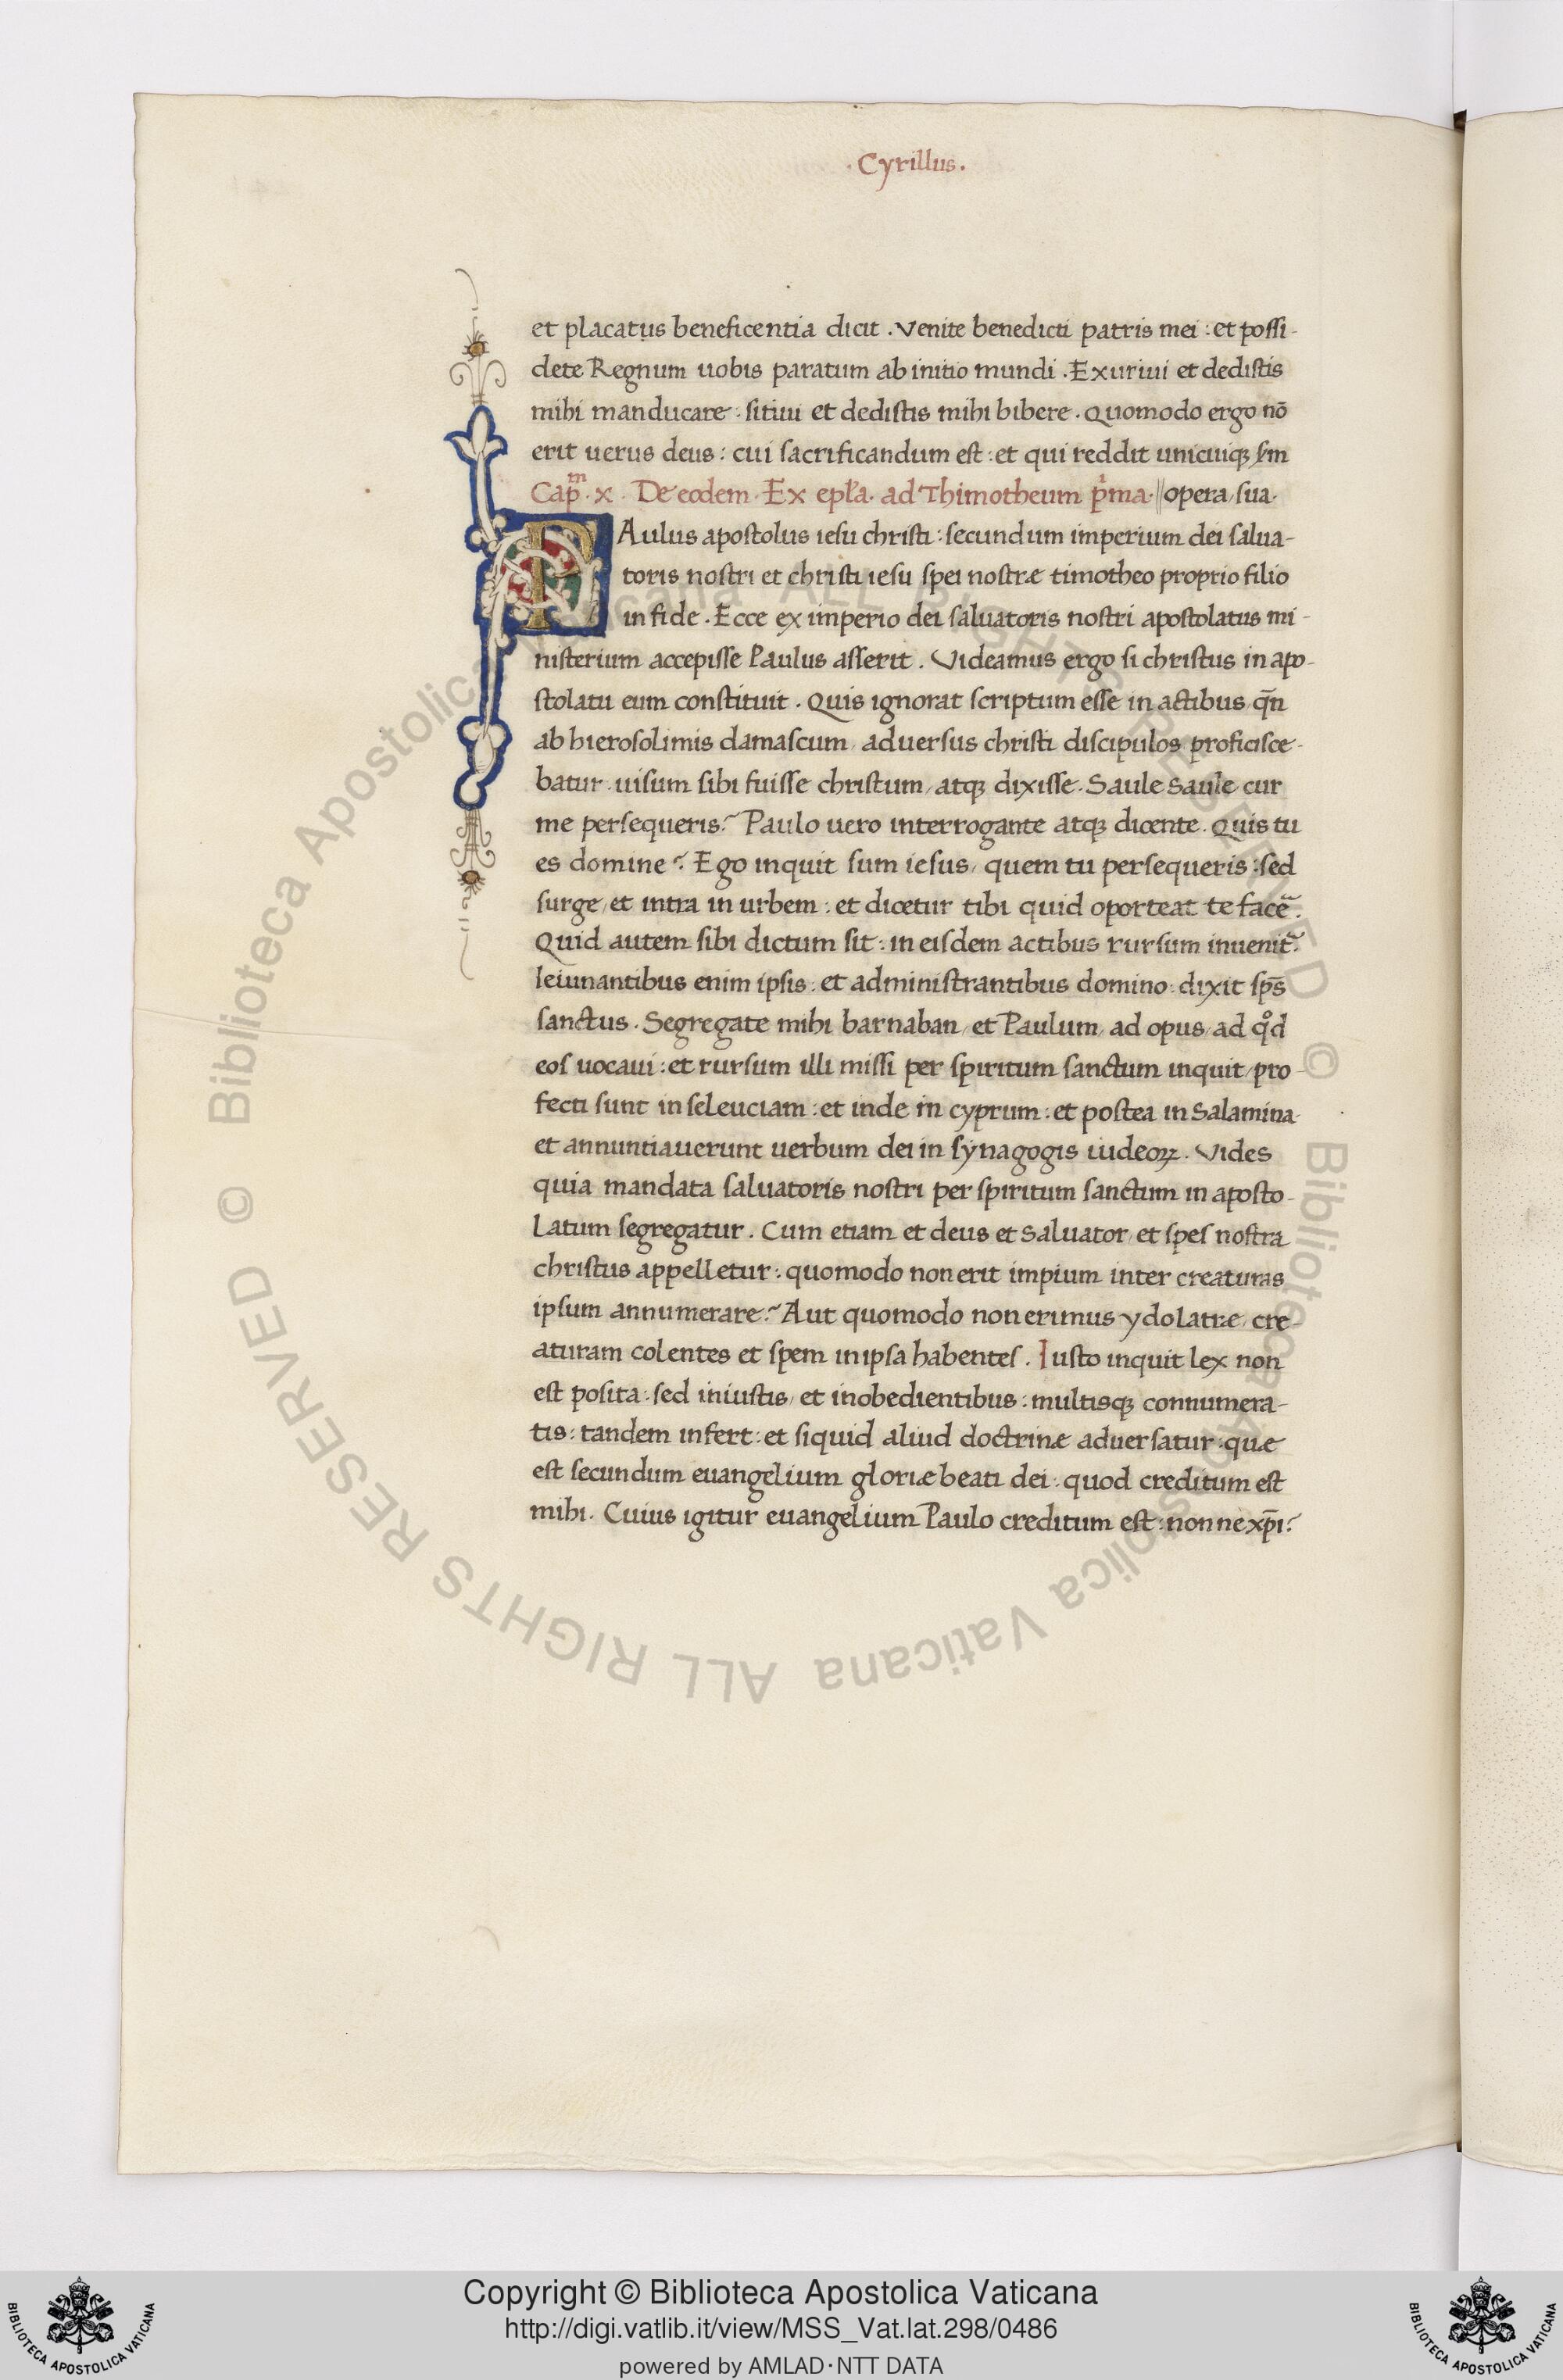 · Cyrillus .
et placatus beneficentia dicit . Venite benedicti patris mei : et possi-
dete Regnum uobis paratum ab initio mundi . Exuriui et dedistis
mihi manducare : sitiui et dedistis mihi bibere . Quomodo ergo nō
erit uerus deus : cui sacrificandum est : et qui reddit unicuiqꝫ
Cap̅ᵐ · x · De eodem · Ex ep̅la · ad Thimotheum prima · || opera sua ·
PAulus apostolus iesu christi : secundum imperium dei salua-
toris nostri et christi iesu spei nostræ timotheo proprio filio
in fide . Ecce ex imperio dei saluatoris nostri apostolatus mi-
nisterium accepisse Paulus asserit . Videamus ergo si christus in apo-
stolatu eum constituit . Quis ignorat scriptum esse in actibus qn̅
ab hierosolimis damascum, aduersus christi discipulos proficisce-
batur . uisum sibi fuisse christum, atqꝫ dixisse . Saule Saule cur
me persequeris? Paulo uero interrogante atqꝫ dicente . Quis tu
es domine? Ego inquit sum iesus, quem tu persequeris : sed
surge, et intra in urbem : et dicetur tibi quid oporteat te face᷑ .
Quid autem sibi dictum sit : in eisdem actibus rursum inuenit᷑ .
Ieiunantibus enim ipsis : et administrantibus domino : dixit sp̅s
sanctus . Segregate mihi barnaban, et Paulum, ad opus, ad qͦd
eos uocaui : et rursum illi missi per spiritum sanctum inquit, pro-
fecti sunt in seleuciam : et inde in cyprum : et postea in Salamina
et annuntiauerunt uerbum dei in synagogis iudeoꝝ . Vides
quia mandata saluatoris nostri per spiritum sanctum in aposto-
latum segregatur . Cum etiam et deus et Saluator, et spes nostra
christus appelletur : quomodo non erit impium inter creaturas
ipsum annumerare? Aut quomodo non erimus ydolatræ, cre-
aturam colentes et spem in ipsa habentes . Iusto inquit lex non
est posita : sed iniustis, et inobedientibus : multisqꝫ connumera-
tis : tandem infert : et siquid aliud doctrinæ aduersatur : quæ
est secundum euangelium gloriæ beati dei : quod creditum est
mihi . Cuius igitur euangelium Paulo creditum est : nonne xp̅i?
© Biblioteca Apostolica Vaticana ALL RIGHTS RESERVED © Biblioteca Apostolica Vaticana ALL RIGHTS RESERVED
Copyright © Biblioteca Apostolica Vaticana
http://digi.vatlib.it/view/MSS_Vat.lat.298/0486
powered by AMLAD·NTT DATA
BIBLIOTECA APOSTOLICA VATICANA
BIBLIOTECA APOSTOLICA VATICANA